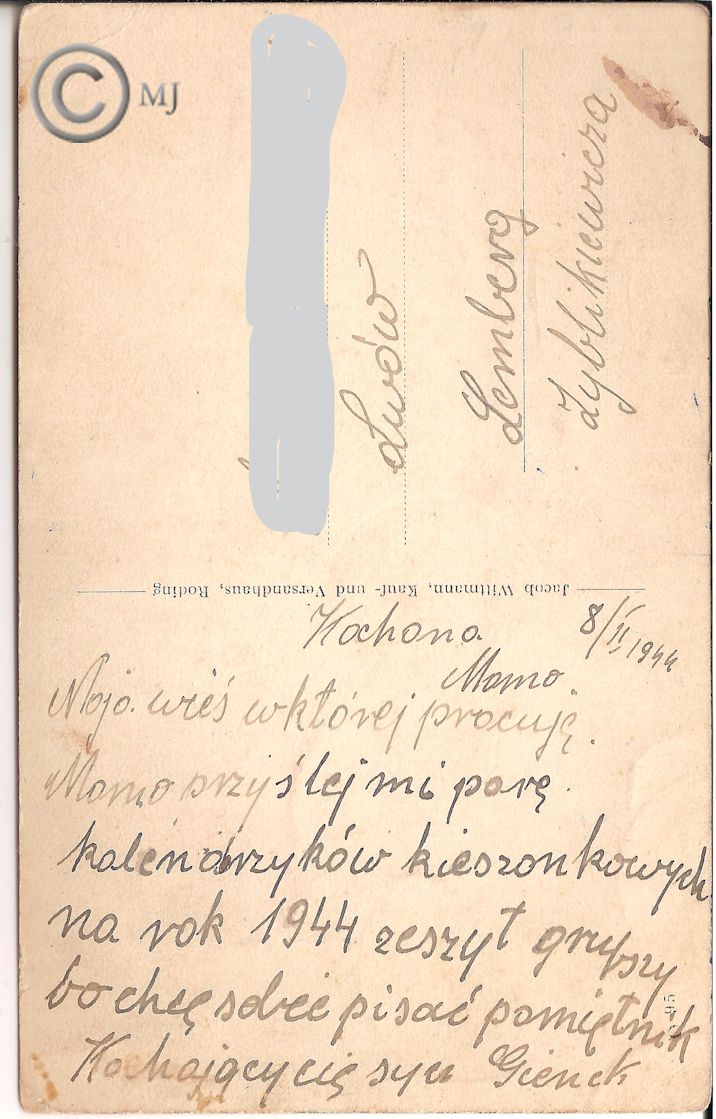 © MJ
Lwów
Lemberg
Zyblikiewicza
Jacob Wittmann, Kauf- und Versandhaus, Roding
8/II 1944
Kochana
Mamo
Moja wieś w której pracuję.
Mamo przyślej mi parę
kalendarzyków kieszonkowych
na rok 1944 zeszyt grubszy
bo chcę sobie pisać pamiętnik
Kochający cię syn Gienek